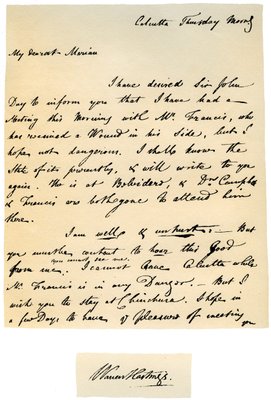 Calcutta Thursday Morng
My dearest Marian
I have desired Sir John
Day to inform you that I have had a
Meeting this Morning with Mr. Francis, who
has received a Wound in his Side, but I
hope not dangerous. I shall know the
State of it presently, & will write to you
again. He is at Belvidere, & Drs. Campbell
& Francis are both gone to attend him
there.
I am well & unhurt. - But
you must be content to hear this Good
from me. you must not see me.
I cannot leave Calcutta while
Mr. Francis is in any Danger. - But I
wish you to stay at Chinchura. I hope in
a few Days to have ye Pleasure of meeting you
Warren Hastings.